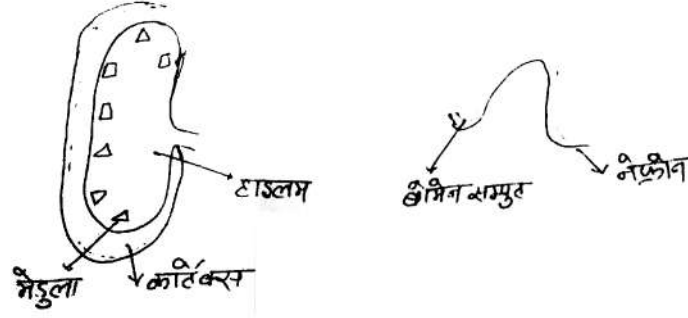 हाइलम
मेडुला
कार्टेक्स
बोमेन सम्पुट
नेफ्रोन